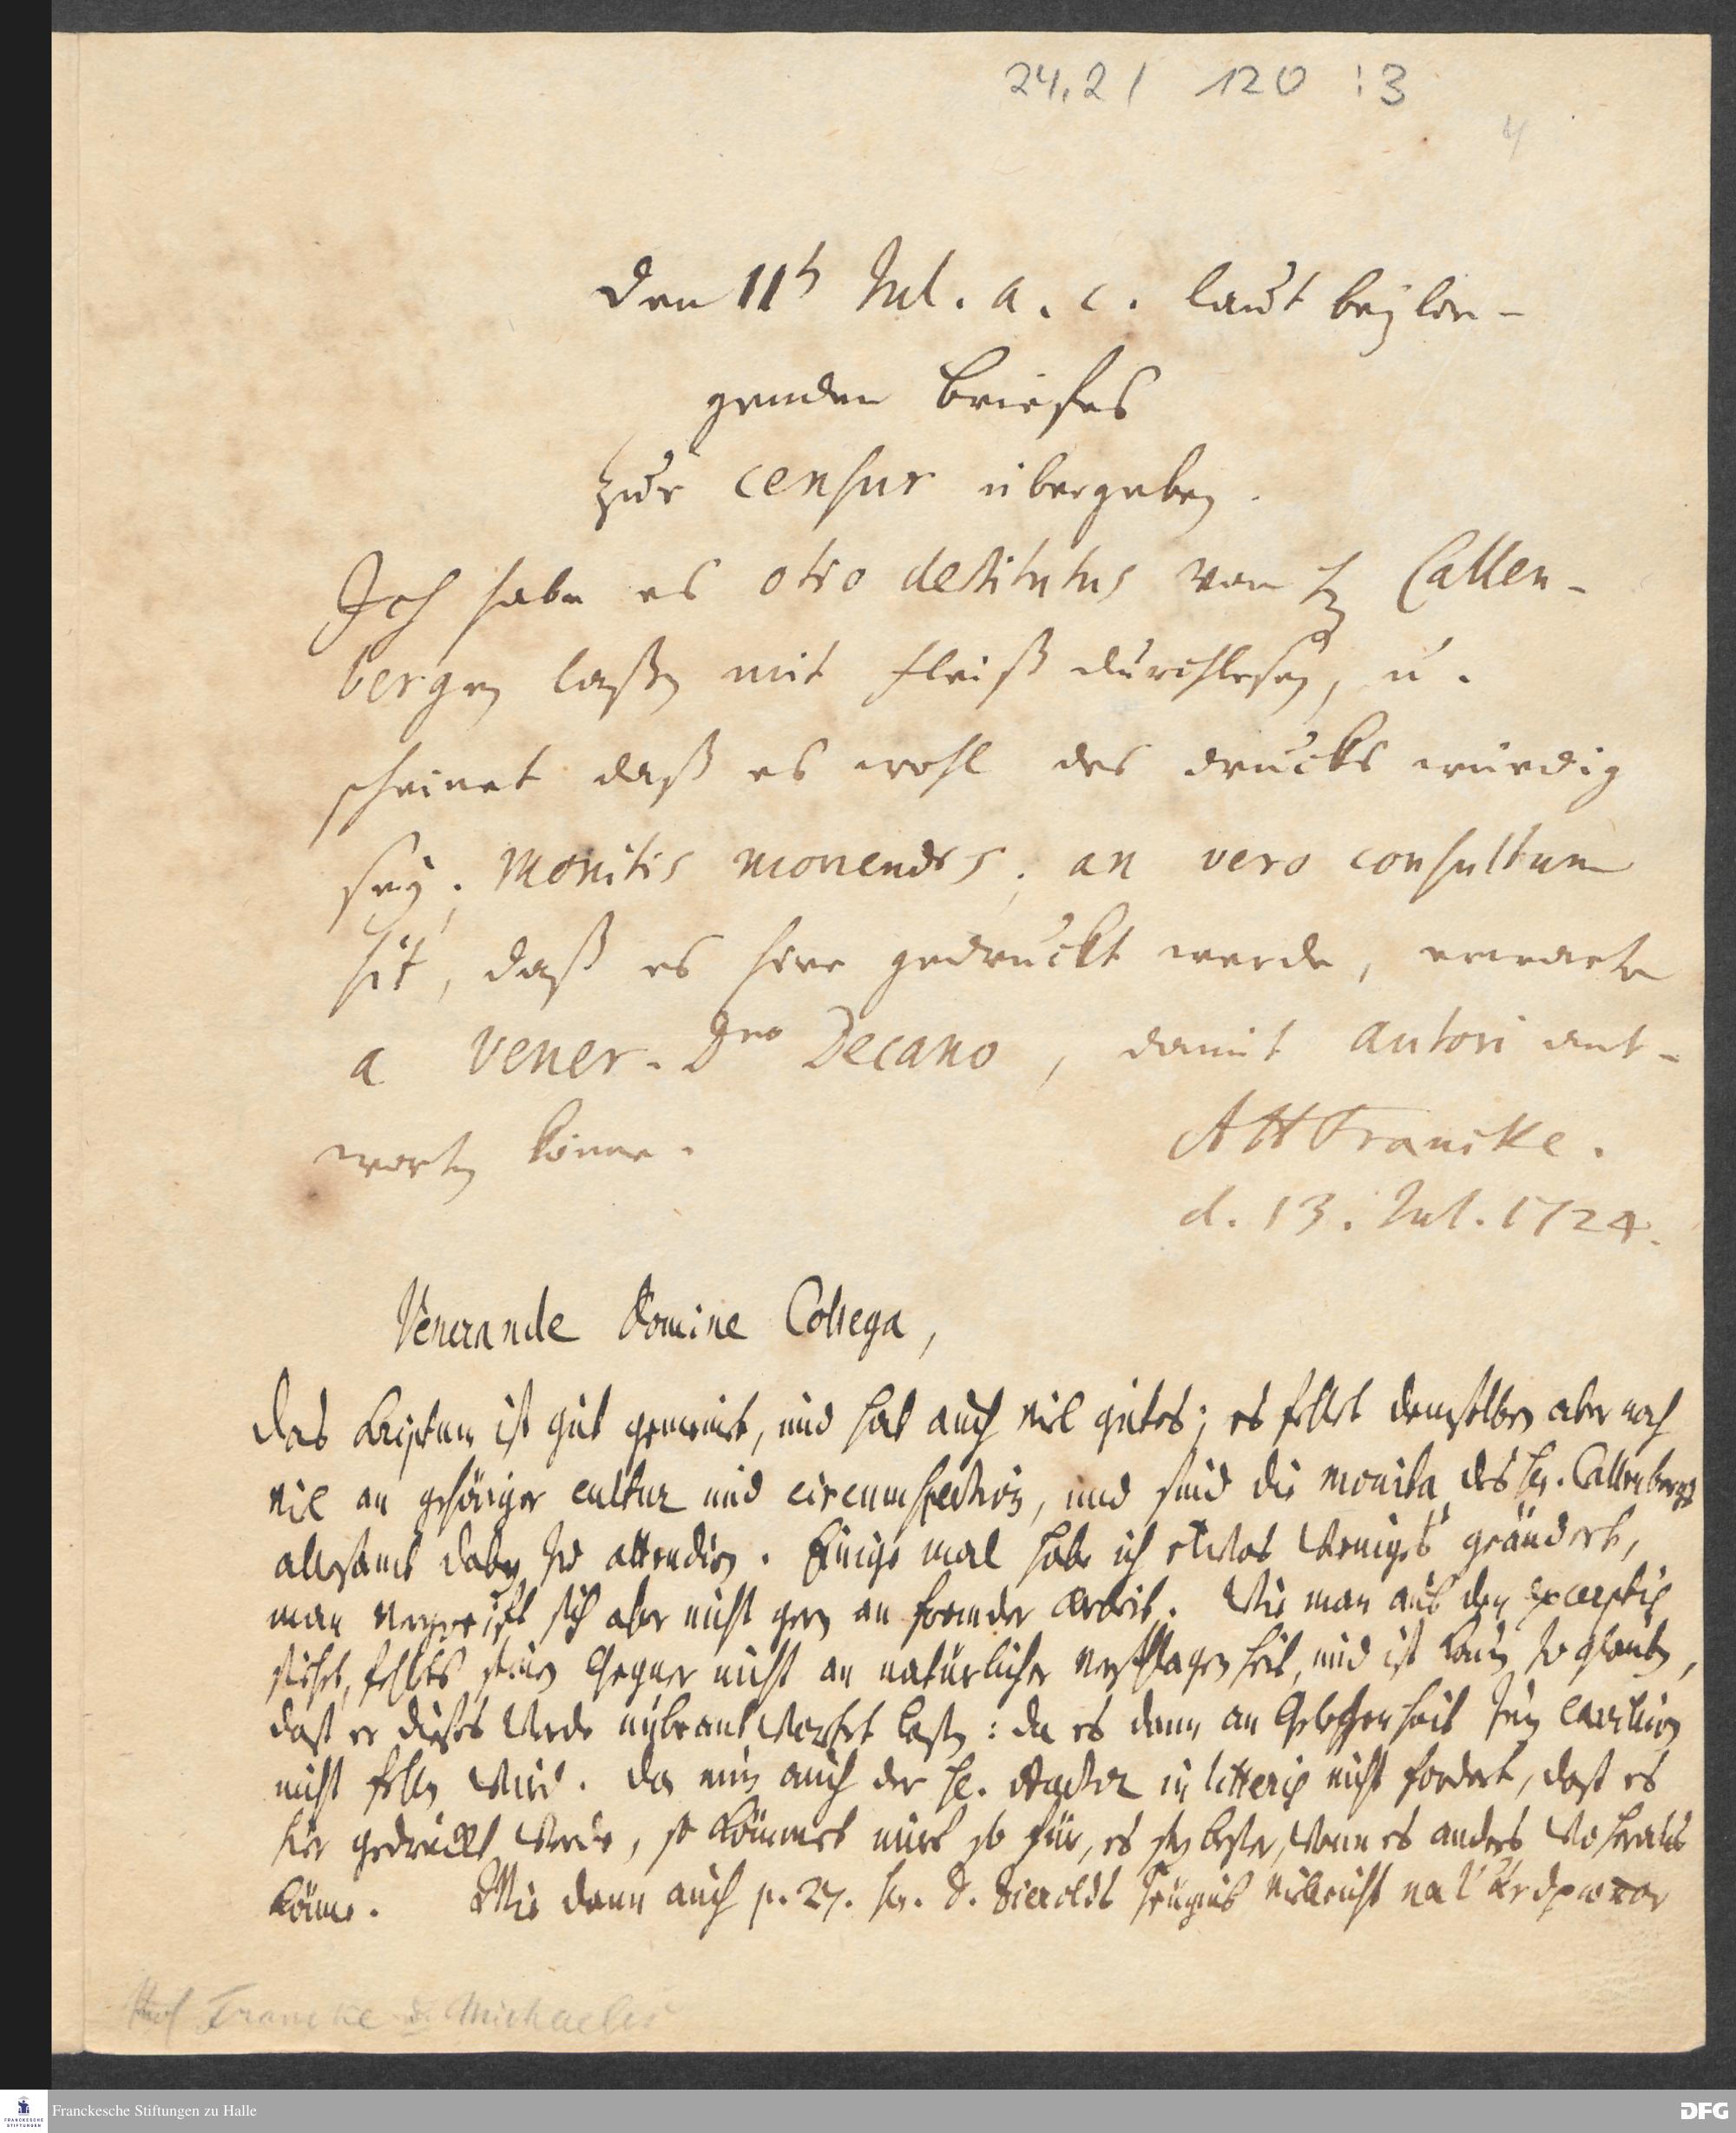 24,2 / 120 : 3
4
Den 11t Jul. a. c. laut beylie-
genden Briefes
zur censur übergeben.
Ich habe es otio destitutus von H Callen-
bergen laßen mit fleiß durchlesen, u.
scheinet daß es wohl des drucks würdig
sey; monitis monendis; an vero consultum
sit, daß es hier gedruckt werde, erwarte
a Vener. Dno Decano, damit autori ant-
worten könne.
AHFrancke.
d. 13. Jul. 1724.
Venerande Domine Collega,
Das scriptum ist gut gemeint, und hat auch viel gutes; es fehlet demselben aber noch
viel an gehöriger cultur und circumspection, und sind die monita des Hr. Callenbergs
allesamt dabey zu attendiren. Einige mal habe ich etwas weniges geändert,
man vergreift sich aber nicht gern an fremder arbeit. Wie man aus den excerptis
siehet, fehlts seinem Gegner nicht an natürlicher verschlagenheit, und ist kaum zu glauben,
daß er dieses werde unbeantwortet laßen: da es denn an Gelegenheit zum cavilliren
nicht fehlen wird. Da nun auch der H. Auctor in litteris nicht fordert, daß es
hier gedruckt werde, so kömmet mirs so für, es sey beßer, wenn es anders wo heraus
käme. Wie denn auch p. 27. Hr. D. Zeugnis vielleicht
Francke u. Michaelis
Franckesche Stiftungen zu Halle
FRANCKESCHE STIFTUNGEN
DFG